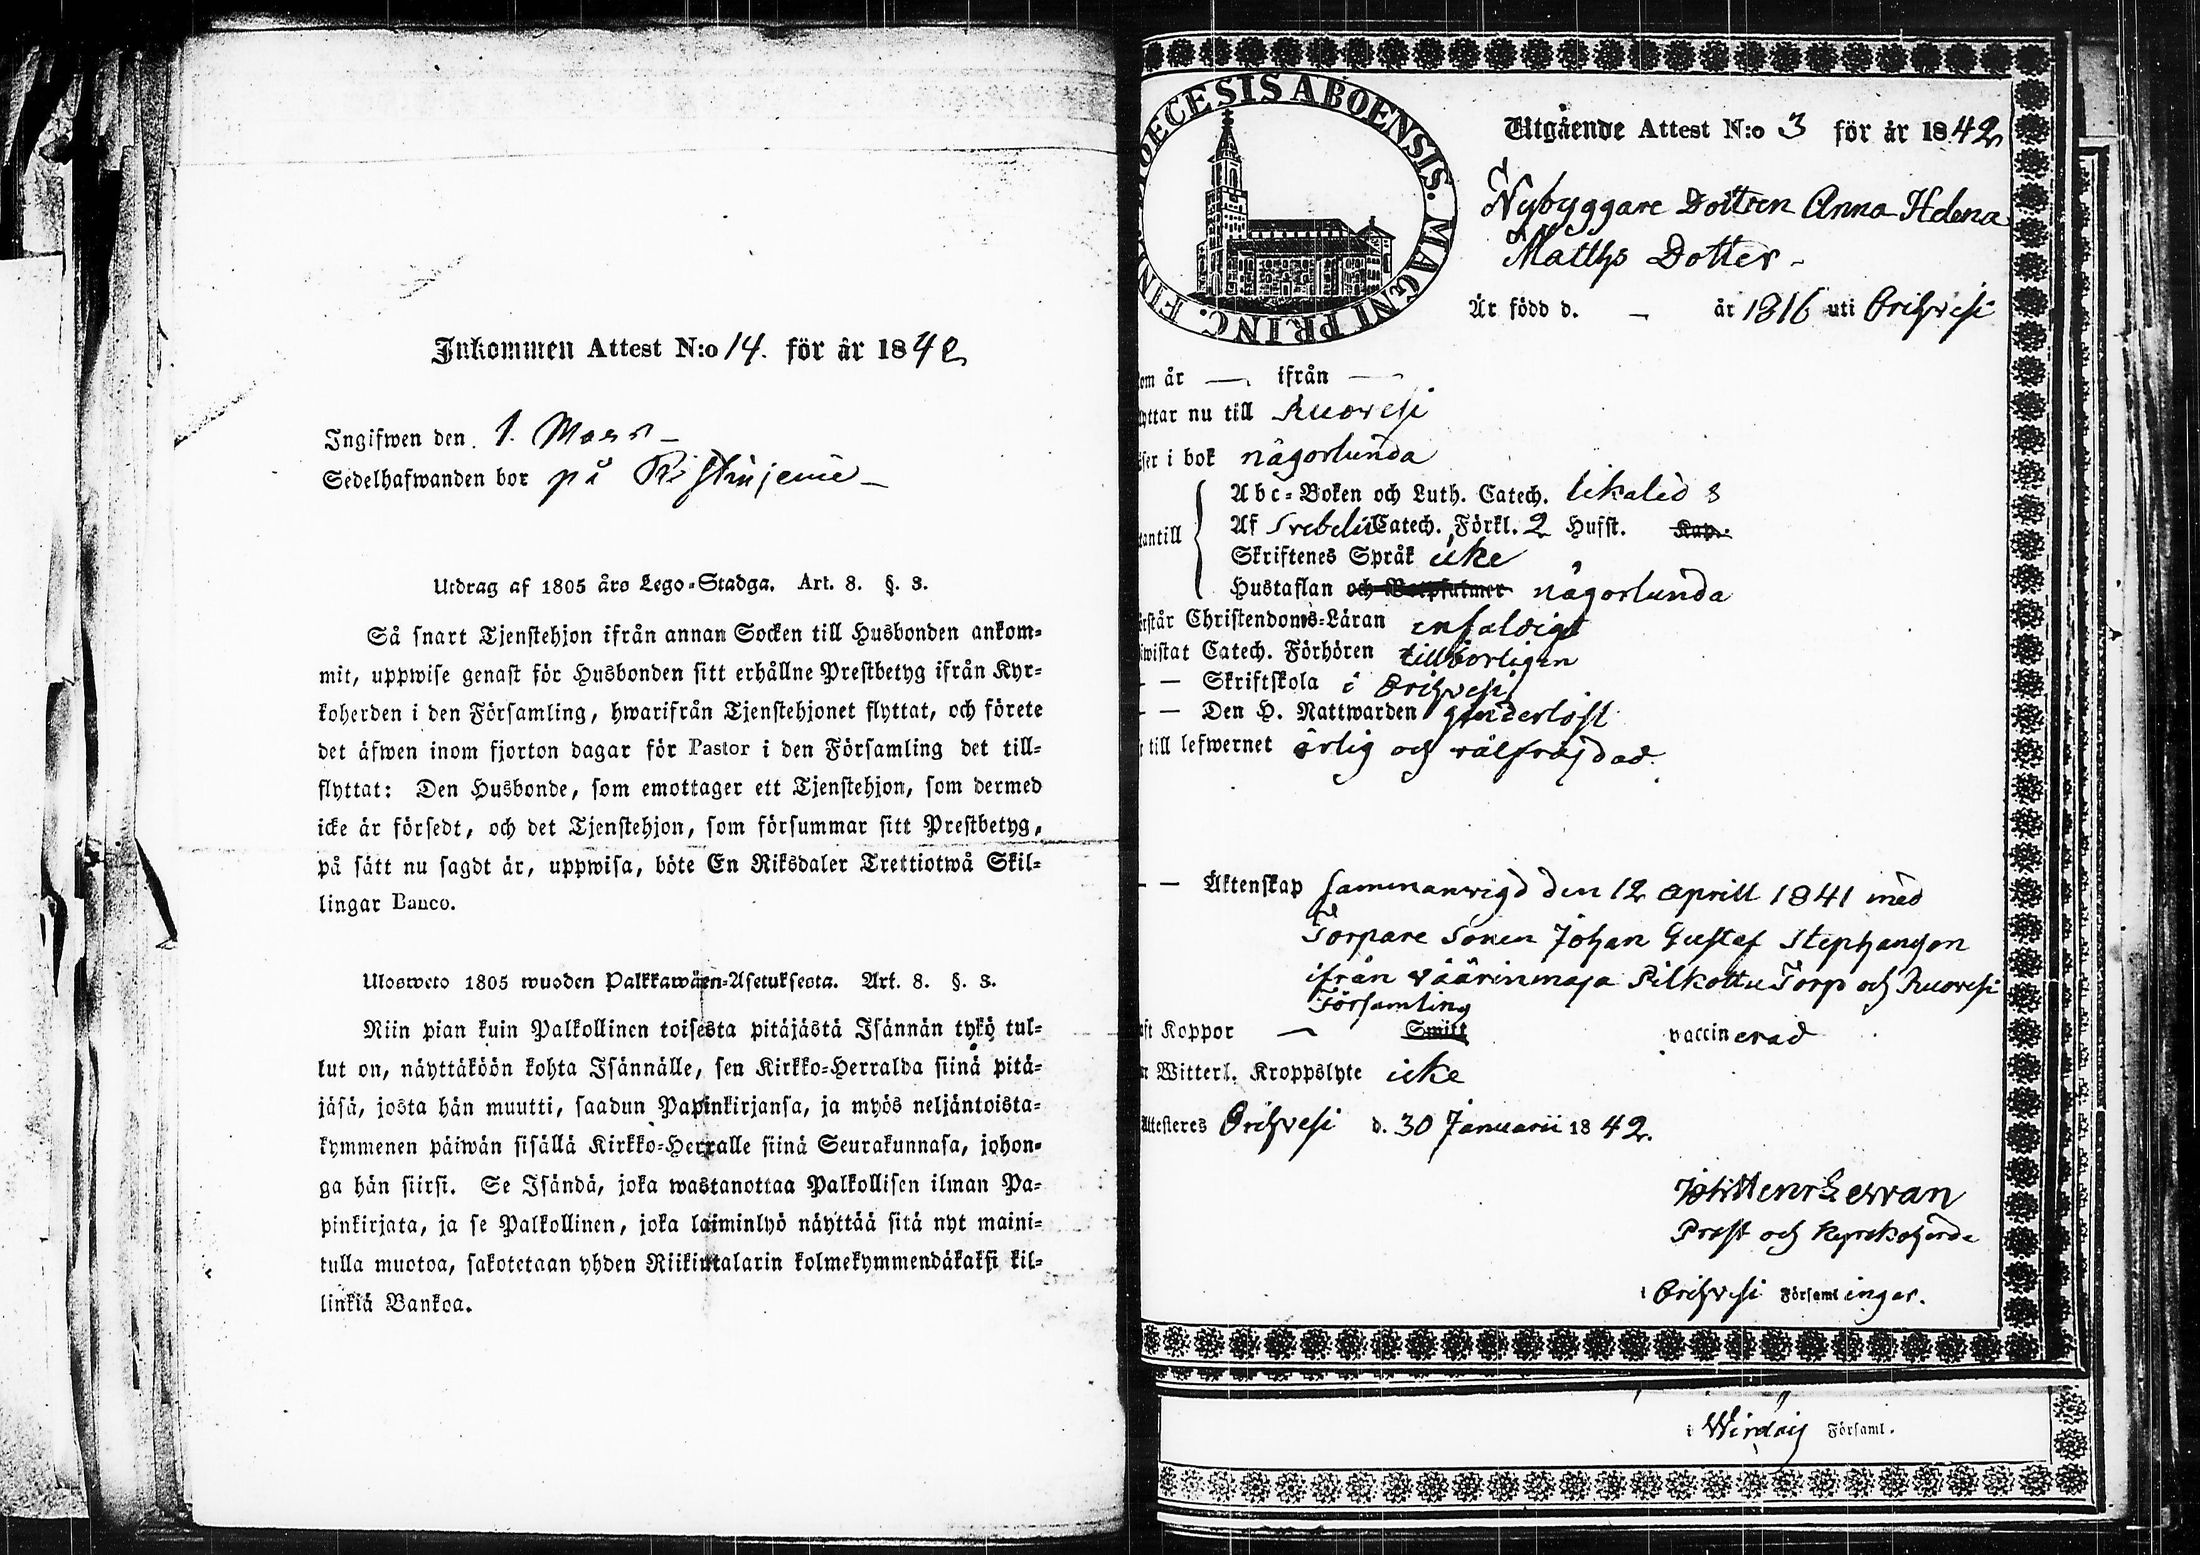 Inkommen Attest N:o 14. för år 1842
Ingifwen den 1. Mars
Sedelhafwanden bor på
Utdrag af 1805 års Lego=Stadga. Art. 8. §. 3.
Så snart Tjenstehjon ifrån annan Socken till Husbonden ankom=
mit, uppwise genast för Husbonden sitt erhållne Prestbetyg ifrån Kyr=
koherden i den Församling, hwarifrån Tjenstehjonet flyttat, och förete
det äfwen inom fjorton dagar för Pastor i den Församling det till=
flyttat: Den Husbonde, som emottager ett Tjenstehjon, som dermed
icke är försedt, och det Tjenstehjon, som försummar sitt Prestbetyg,
på sätt nu sagdt är, uppwisa, böte En Riksdaler Trettiotwå Skil=
lingar Banco.
Ulosweto 1805 wuoden Palkkawäen=Asetuksesta. Art. 8. §. 3.
Niin pian kuin Palkollinen toisesta pitäjästä Isännän tykö tul=
lut on, näyttäköön kohta Isännälle, sen Kirkko=Herralda siinä pitä=
jäsä, josta hän muutti, saadun Papinkirjansa, ja myös neljäntoista=
kymmenen päiwän sisällä Kirkko=Herralle siinä Seurakunnasa, johon=
ga hän siirsi. Se Isändä, joka wastanottaa Palkollisen ilman Pa=
pinkirjata, ja se Palkollinen, joka laiminlyö näyttää sitä nyt maini=
tulla muotoa, sakotetaan yhden Riikintalarin kolmekymmendäkaksi kil=
linkiä Bankoa.
OECESIS ABOENSIS. MAGNI PRINC. FIN
Utgående Attest N:o 3 för år 1842
Nybyggare Dottren Anna Helena
Matths Dotter -
Är född d. — år 1816 uti Orihvesi
om år — ifrån —
yttar nu till Ruovesi
ser i bok någorlunda
Abc=Boken och Luth. Catech. likaled s
antill Af Svebelii Catech. Förkl. 2 Hufst. Kap.
Skriftenes Språk icke
Hustaflan och Botpsalmer någorlunda
rstår Christendoms=Läran enfaldigt
wistat Catech. Förhören tillbörligen
— — Skriftskola i Orihvesi
— — Den H. Nattwarden
till lefwernet ärlig och välfräjdad.
— — Äktenskap sammanvigd den 12 Aprill 1841 med
Torpare Sonen Johan Gustaf Stephansson
ifrån Väärinmaja Pilkottu Torp och Ruovesi
Församling
ft Koppor — Smitt vaccinerad
Witterl. Kroppslyte icke
Attesteres Orihvesi d. 30 Januarii 1842.
Prost och Kyrckoherde
i Orihvesi Församlingar.
i Wirdois Församl.